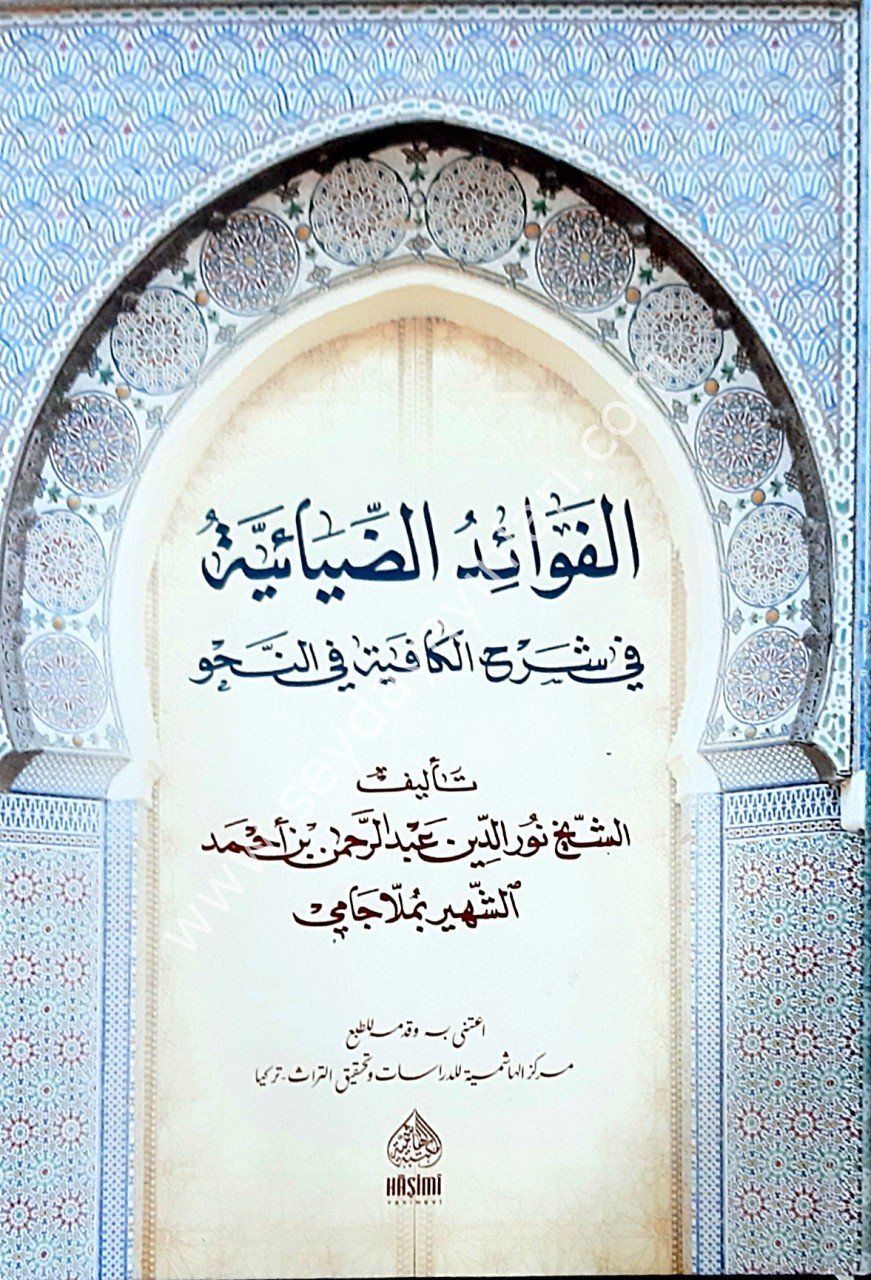 الفَوَائِدُ الضِّيَائِيَّةُ
في شرح الكافية في النحو
تأليف
الشيخ نور الدين عبد الرحمن بن أحمد
الشهير بملا جامي
اعتنى به وقدمه للطبع
مركز الهاشمية للدراسات وتحقيق التراث - تركيا
HÂŞİMİ
YAYINEVİ